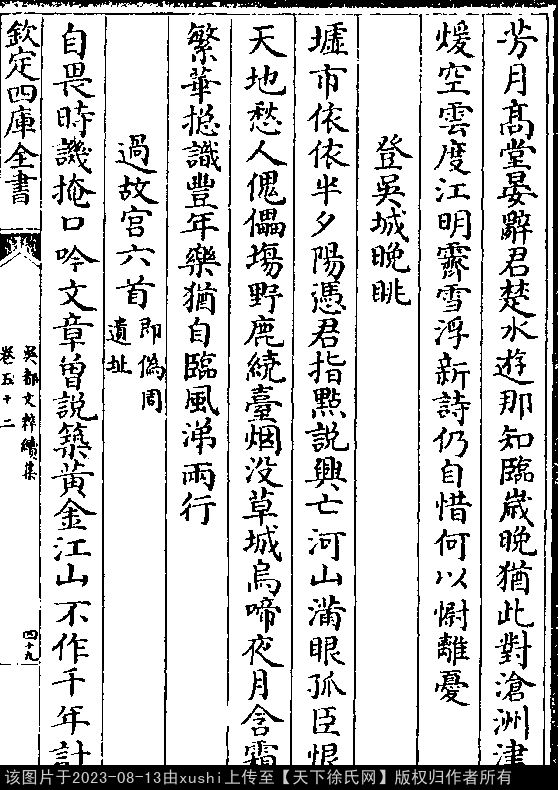 芳月髙堂晏辭君楚水遊那知臨歳晚猶此對滄洲津
煖空雲度江明霽雪浮新詩仍自惜何以慰離憂
登吳城晚眺
墟市依依半夕陽憑君指點說興亡河山滿眼孤臣恨
天地愁人傀儡塲野鹿繞臺烟没草城烏啼夜月含霜
繁華揔識豐年樂猶自臨風涕兩行
過故宫六首即偽周遺址
自畏時譏掩口吟文章曽說築黄金江山不作千年計
欽定四庫全書
吳都文粹續集
卷五十二
四十九
该图片于2023-08-13由xushi上传至【天下徐氏网】版权归作者所有